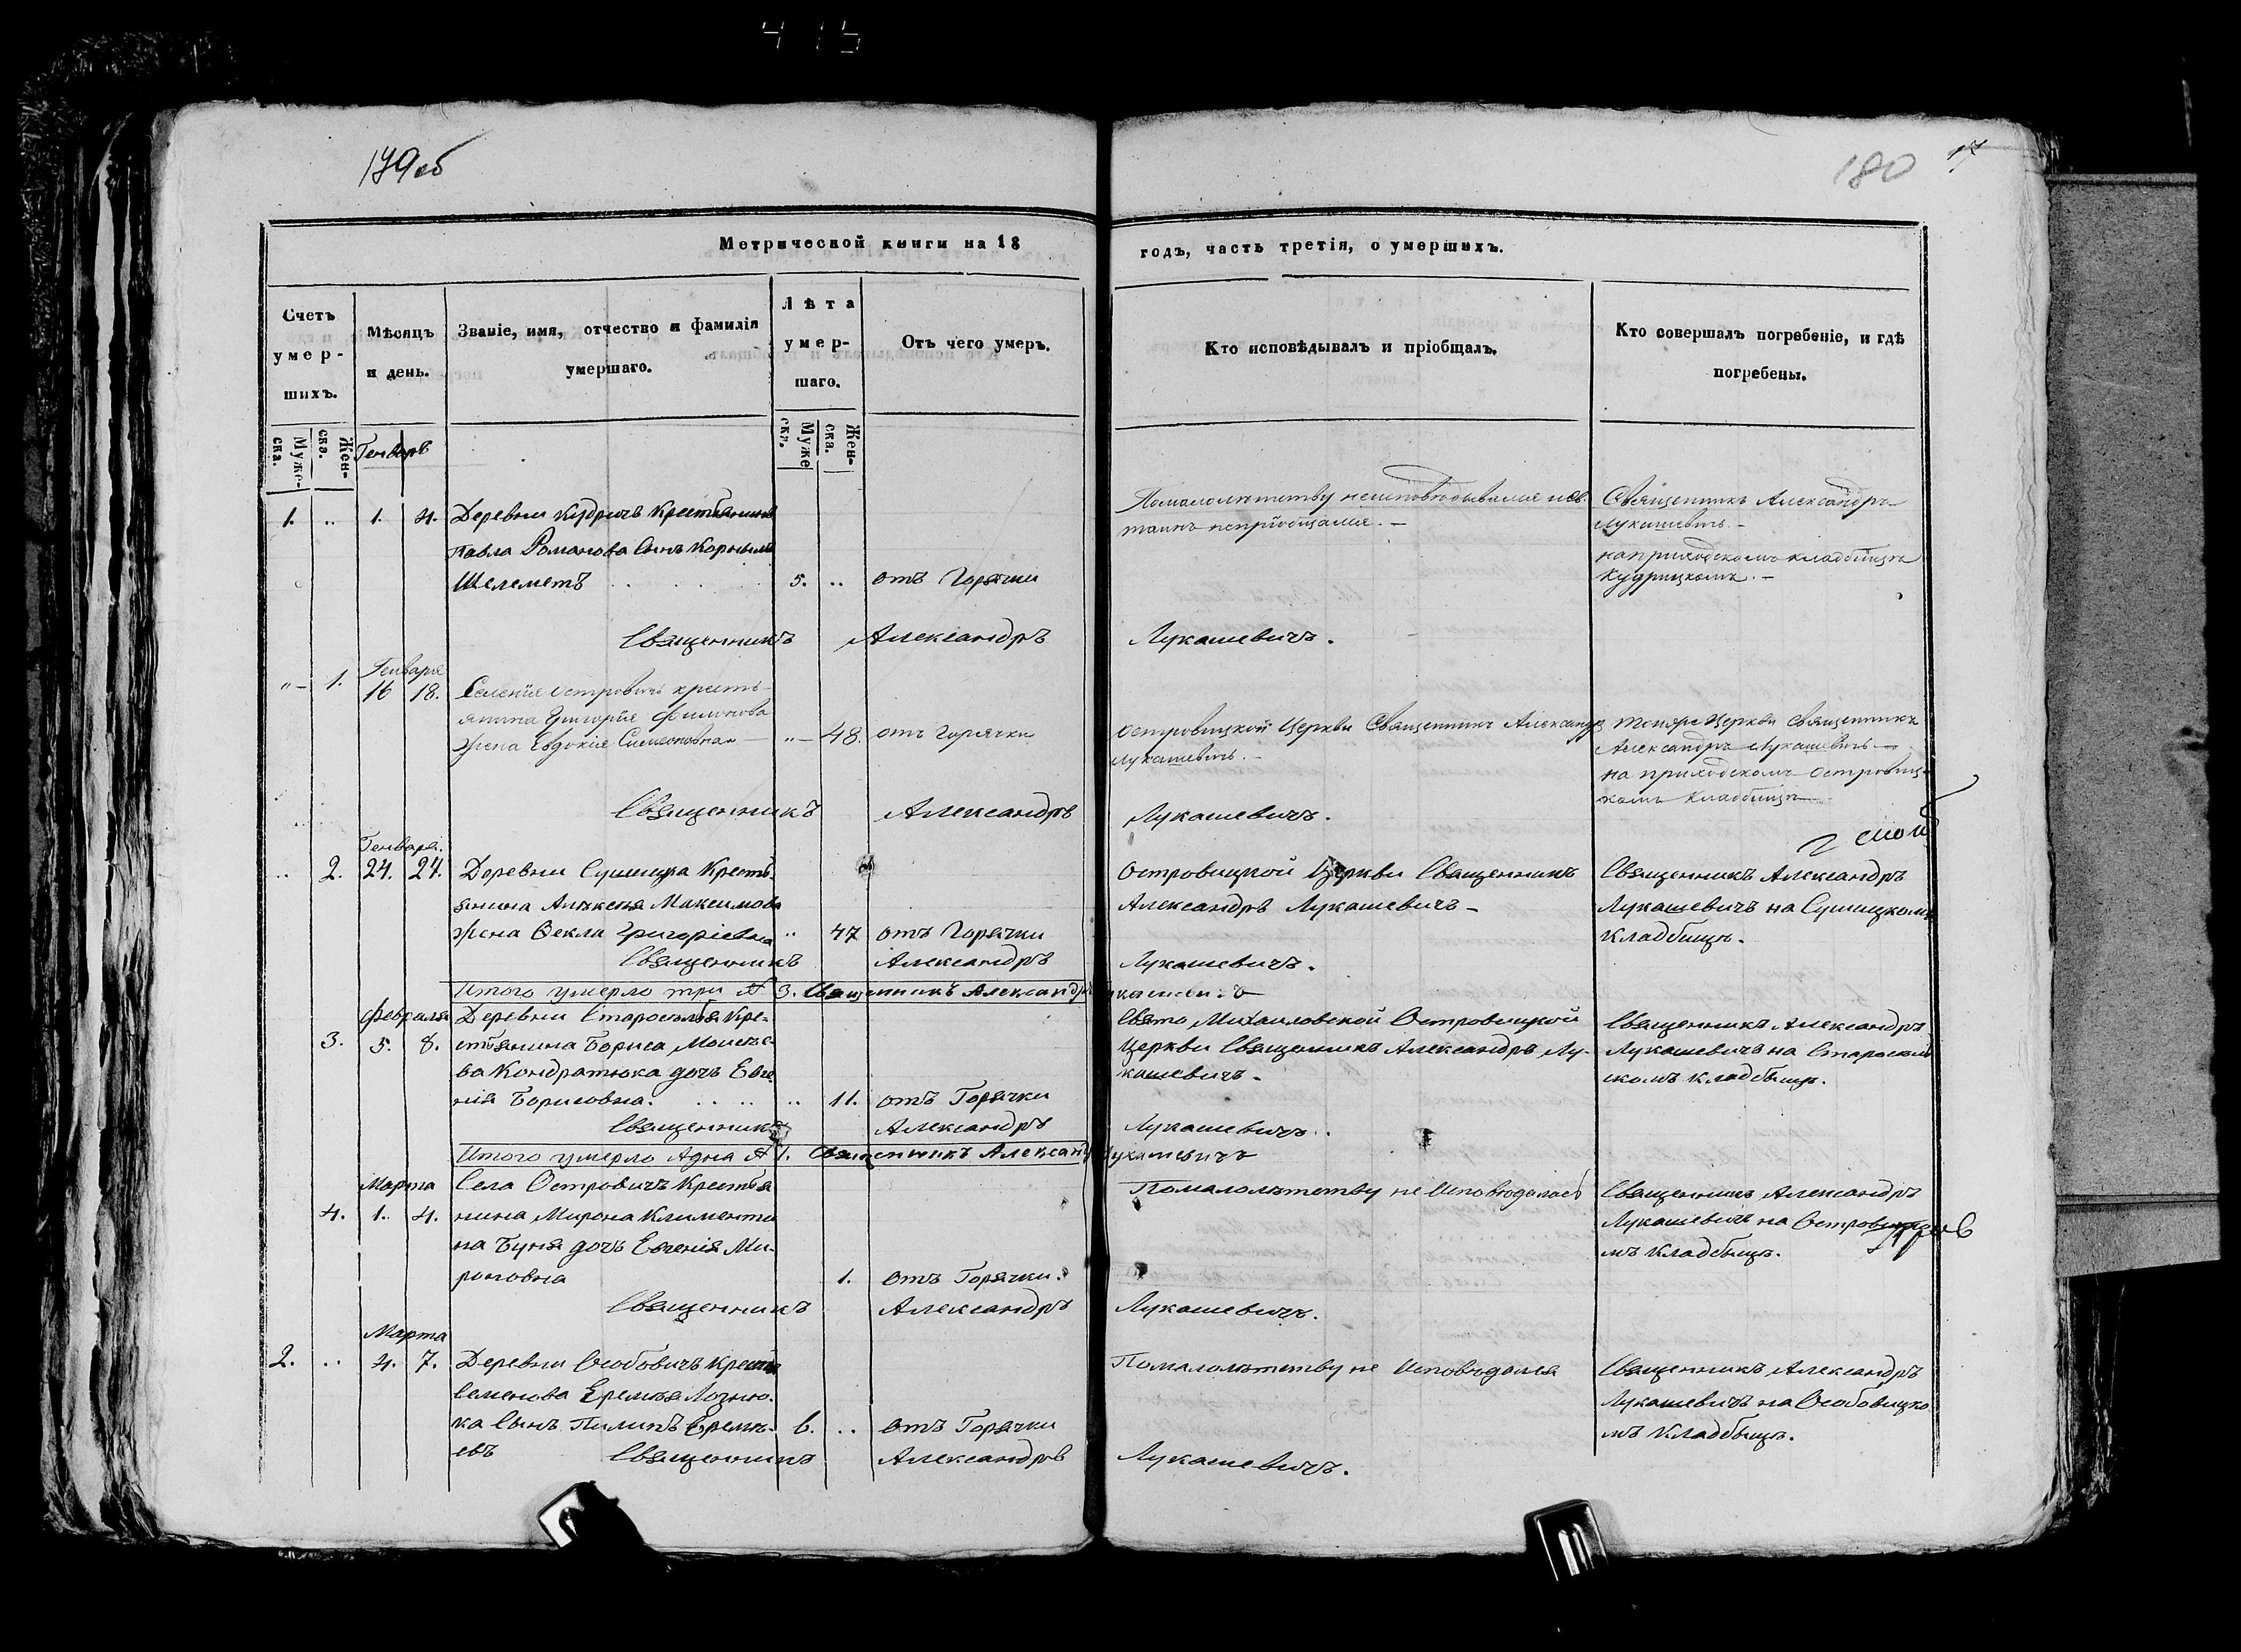 415
179об
180
17
Метрической книги на 18
годъ, часть третія, о умершихъ.
Счетъ умер-шихъ.
Мѣсяцъ и день.
Званіе, имя, отчество и фамилія умершаго.
Лѣта умер-шаго.
Отъ чего умеръ.
Кто исповѣдывалъ и пріобщалъ.
Кто совершалъ погребеніе, и гдѣ погребены.
Муже-ска.
Жен-ска.
Муже ска.
Жен-ска.
Генварь
1. .. 1. 4. Деревни Кудричъ Крестьянина
Павла Романова Сынъ Корнилъ
Шелеметъ 5. .. отъ Горячки
Помалолѣтству неисповѣдывался и св.
таинъ непріобщался. -
Священникъ Александръ
Лукашевичъ. -
на приходскомъ кладбищѣ
Кудрицкомъ. -
Священникъ Александръ Лукашевичъ.
Генваря
"- 1. 16 18. Селенія Островичъ кресть-
янина Григорія Филимонова
жена Евдокія Симеоновна "- 48. отъ горячки
Островицкой Церкви Священникъ Александръ
Лукашевичъ. -
Тойже Церкви Священникъ
Александръ Лукашевичъ -
на приходскомъ Островиц-
комъ Кладбищѣ
Священникъ Александръ Лукашевичъ.
Генваря.
.. 2. 24. 27. Деревни Сушицка Кресть-
янина Алѣксѣя Максимова
жена Ѳекла Григоріевна .. 47 отъ Горячки
Островицкой Церкви Священникъ
Александръ Лукашевичъ -
Священникъ Александръ
Лукашевичъ на Сушицкомъ
Кладбищѣ.
Священникъ Александръ Лукашевичъ.
Итого умерло три 3. Священникъ Александръ
Февраля
3. 5. 8. Деревни Старосѣлья Кре-
стьянина Бориса Моисѣе-
ва Кондратюка дочь Евге-
нія Борисовна. .. 11. отъ Горячки
Свято Михаиловской Островицкой
Церкви Священникъ Александръ Лу-
кашевичъ -
Священникъ Александръ
Лукашевичъ на Старосель
скомъ кладбищѣ.
Священникъ Александръ Лукашевичъ.
Итого умерло Адна 1. Священникъ Лукашевичъ
Марта
4. 1. 4. Села Островичъ Крестья
нина Мирона Климента
на Буня дочь Евгенія Ми-
роновна 1. отъ Горячки.
Помалолѣтству не Исповѣдалась
Священникъ Александръ
Лукашевичъ на
мъ Кладбищѣ.
Священникъ Александръ Лукашевичъ.
Марта
2. .. 4. 7. Деревни Особовичъ
Семенова Еремѣя
ка Сынъ Пилипъ Еремѣ-
евъ 6. .. отъ Горячки
Помалолѣтству не Исповѣдался
Священникъ Александръ
Лукашевичъ на Особовицко
мъ Кладбищѣ.
Священникъ Александръ Лукашевичъ.